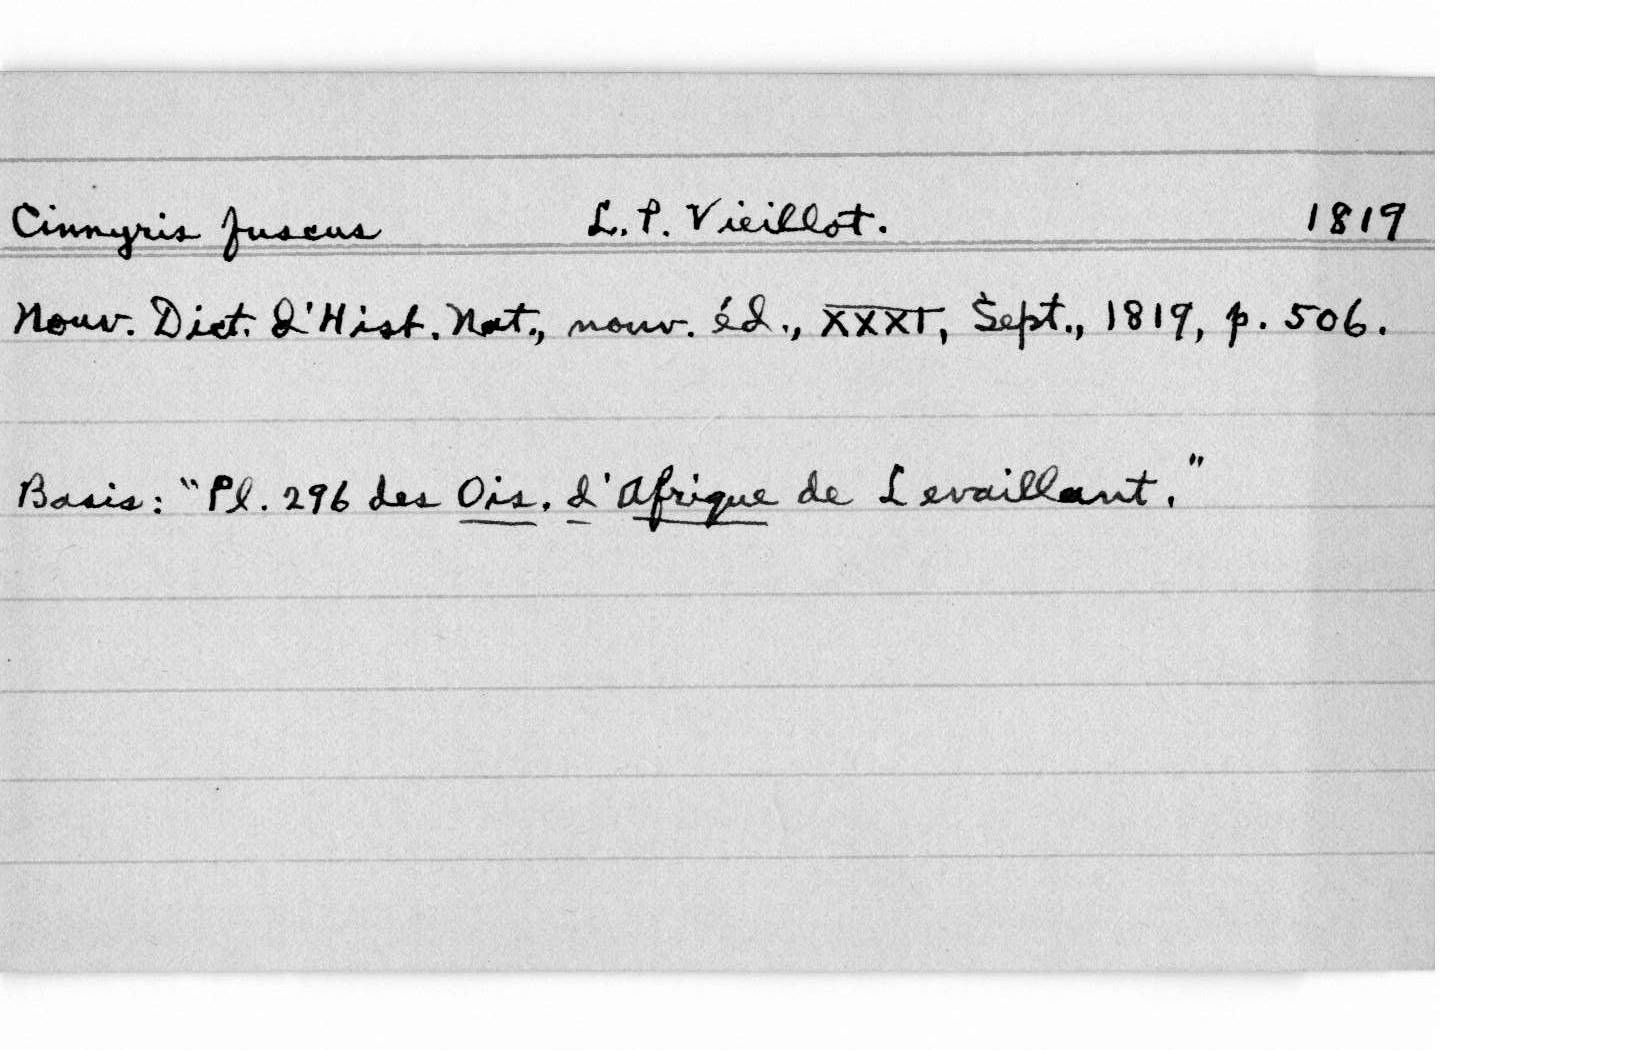 Cinnyris fuscus L. P. Vieillot. 1819
Nouv. Dict. d'Hist. Nat., nouv. éd., XXXI, Sept., 1819, p. 506.
Basis: "Pl. 296 des Ois. d'Afrique de Levaillant."